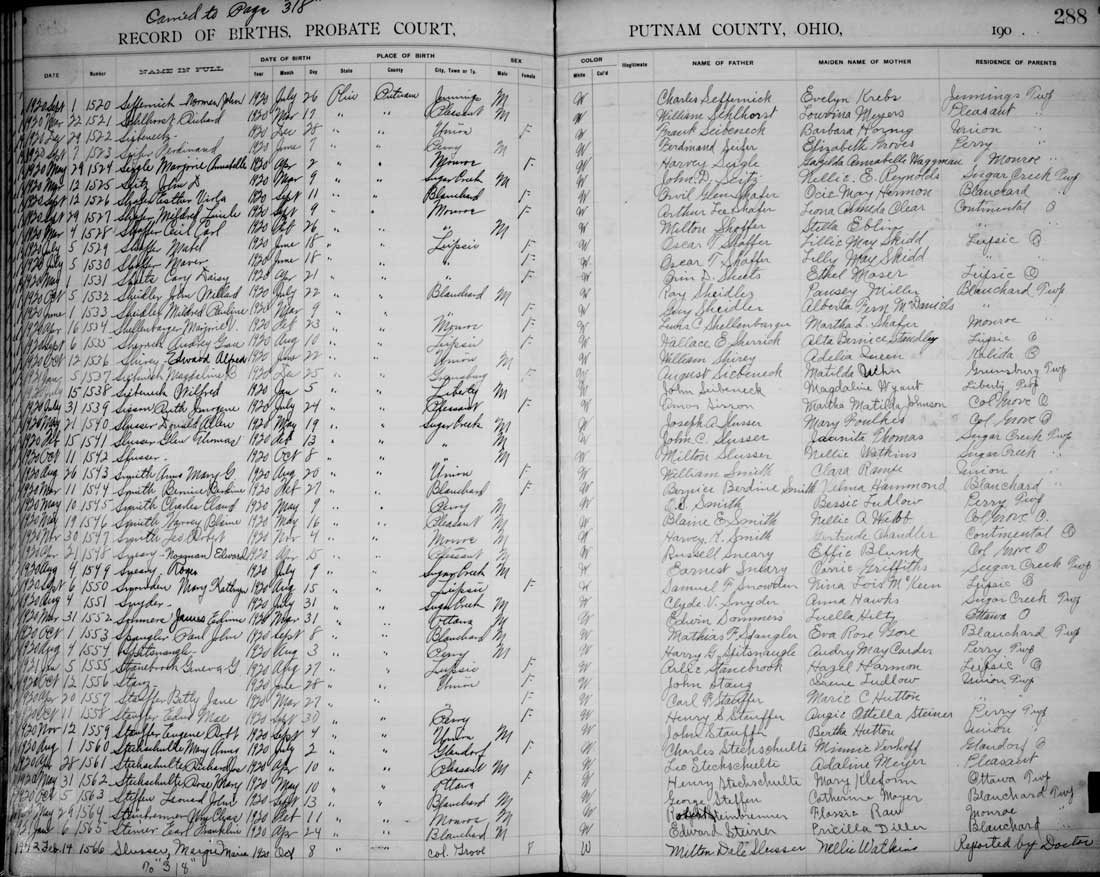 Carried to Page 318"
288
RECORD OF BIRTHS, PROBATE COURT, PUTNAM COUNTY, OHIO, 190
DATE Number NAME IN FULL DATE OF BIRTH PLACE OF BIRTH SEX COLOR Illegitimate NAME OF FATHER MAIDEN NAME OF MOTHER RESIDENCE OF PARENTS
Year Month Day State County City, Town or Tp. Male Female White Col'd
1920 Sept 1 1520 Seffernick Norman John 1920 July 26 Ohio Putnam Jennings M W Charles Seffernick Evelyn Krebs Jennings Twp
1920 Mar 22 1521 Sehlhorst Richard 1920 Mar 17 " " Pleasant M W William Sehlhorst Louvina Meyers Pleasant "
29 1522 1920 Dec 28 " " Union F W Frank Seibeneck Barbara Hornig Union "
1523 Ferdinand 1920 June 7 " " Perry M W Ferdinand Elizabeth Groves Perry "
1920 May 29 1524 Seigle Marjorie Annabelle 1920 Apr 2 " " Monroe F W Harvey Seigle Annabelle Waggman Monroe "
1920 Mar 12 1525 Seitz John D 1920 Mar 9 " " Sugar Creek M W John D. Seitz Nellie E. Reynolds Sugar Creek Twp
1920 Sept 12 1526 Esther Viola 1920 Sept 11 " " Blanchard F W Orvil Glen Shafer Ocie May Harmon Blanchard "
1920 Sept 29 1527 Mildred 1920 Sept 9 " " Monroe F W Arthur Lee Shafer Leona Clear Continental O
4 1528 Shaffer Cecil Carl 1920 26 " " " M W Milton Shaffer Stella Ebling " "
1920 July 5 1529 Shaffer Mabel 1920 June 18 " " Leipsic F W Oscar T Shaffer Lillie May Skidd Leipsic O
1920 July 5 1530 Shaffer 1920 June 18 " " " F W Oscar T Shaffer Lilly May Skidd " "
1 1531 Sheets Cary Daisy 1920 Apr 21 " " " F W Orin D. Sheets Ethel Moser Leipsic O
1920 Oct 5 1532 Sheidler John Willard 1920 July 22 " " Blanchard M W Ray Sheidler Pansey Miller Blanchard Twp
1920 June 1 1533 Sheidler Mildred Pauline 1920 Mar 9 " " " F W Guy Sheidler Alberta Fern McDaniels " "
1920 Apr 16 1534 Shellenbarger Marjorie V. 1920 23 " " Monroe F W Shellenbarger Martha L. Shafer Monroe "
Sept 6 1535 Sherrick Audrey 1920 Aug 10 " " Leipsic F W Wallace E Sherrick Alta Bernice Standley Leipsic O
1920 Oct 12 1536 Shirey Edward Alfred 1920 June 22 " " Union M W William Shirey Adelia Queen Kalida O
5 1537 Magdaline 1920 Dec 25 " " Greensburg F W August Siebeneck Matilda Greensburg Twp
15 1538 Siebeneck Wilfred 1920 Jan 5 " " Liberty M W John Siebeneck Magdaline Wyant Liberty Twp
1920 July 31 1539 Sisson Ruth Imogene 1920 July 24 " " Pleasant F W Amos Sisson Martha Matilda Johnson Col Grove O
1920 May 21 1540 Slusser Donald Allen 1920 May 19 " " Sugar Creek M W Joseph A Slusser Mary Foulkes Col Grove O
1920 Oct 15 1541 Slusser Glen Thomas 1920 Oct 13 " " " M W John C. Slusser Juanita Thomas Sugar Creek Twp
1920 Oct 11 1542 Slusser 1920 Oct 8 " " " M W Milton Slusser Nellie Watkins Sugar Creek "
1920 Aug 26 1543 Smith Anna Mary G. 1920 Aug 20 " " Union F W William Smith Clara Union "
1920 Nov 11 1544 Smith Bernice Berdine 1920 Oct 27 " " Blanchard F W Bernice Berdine Smith Velma Hammond Blanchard "
1920 May 10 1545 Smith Charles 1920 May 9 " " Perry M W C.S. Smith Bessie Ludlow Perry Twp
1920 19 1546 Smith Harvey Blaine 1920 May 16 " " Pleasant M W Blaine E Smith Nellie A Webb Col Grove O.
1920 Nov 30 1547 Smith 1920 Nov 4 " " Monroe M W Harvey K. Smith Gertrude Chandler Continental O
1920 Apr 21 1548 Sneary Norman Edward 1920 Apr 15 " " Pleasant M W Russell Sneary Effie Blunk Col Grove O
1920 Aug 9 1549 Sneary Roger 1920 July 9 " " Sugar Creek M W Earnest Sneary Carrie Griffiths Sugar Creek Twp
1920 Sept 6 1550 Snowden Mary Kathryn 1920 Aug 15 " " Leipsic F W Samuel F Snowden Nina Lois McKeen Leipsic O
1920 Aug 4 1551 Snyder 1920 July 31 " " Sugar Creek M W Clyde V. Snyder Anna Hawks Sugar Creek Twp
31 1552 Sommers James 1920 Mar 31 " " Ottawa M W Edwin Sommers Luella Hilty Ottawa O
1920 Oct 1 1553 Spangler Paul John 1920 Sept 8 " " Blanchard M W Mathias F. Spangler Eva Rose Blanchard Twp
1920 Aug 4 1554 Spitsnaugle 1920 Aug 3 " " Perry M W Harry G. Spitsnaugle Audry May Carder Perry Twp
5 1555 Stanebrook Geneva G. 1920 Aug 27 " " Leipsic F W Arlie Stanebrook Hazel Harmon Leipsic O
1920 Oct 12 1556 Staug 1920 June 28 " " Union F W John Staug Irene Ludlow Union Twp
1920 Apr 20 1557 Stauffer Betty Jane 1920 Mar 27 " " " F W Carl P. Stauffer Marie C Hutton " "
Oct 11 1558 Stauffer Edna Mae 1920 Sept 30 " " Perry F W Henry S. Stauffer Angie Ottella Steiner Perry Twp
1920 Nov 12 1559 Stauffer Eugene Robt 1920 Sept 4 " " Union M W John Stauffer Bertha Hutton Union "
1920 Aug 1 1560 Steckschulte Mary Anna 1920 July 2 " " Glandorf F W Charles Steckschulte Minnie Verhoff Glandorf O
1920 Apr 28 1561 Steckschulte Richard 1920 Apr 10 " " Pleasant M W Leo Steckschulte Adaline Meyer Pleasant
1920 May 31 1562 Steckschulte Rose Mary 1920 May 10 " " Ottawa F W Henry Steckschulte Mary Ottawa Twp
1920 Oct 5 1563 Steffen Leonard John 1920 Sept 13 " " Blanchard M W George Steffen Catherine Moyer Blanchard Twp
29 1564 Steinbrenner 1920 Oct 11 " " Monroe M W Robert Steinbrenner Flossie Rau Monroe "
6 1565 Steiner Earl Franklin 1920 Apr 24 " " Blanchard M W Edward Steiner Pricilla Diller Blanchard "
Feb. 14 1566 Slusser, Margie Marie 1920 Oct 8 " " Col. Grove F W Milton Dale Slusser Nellie Watkins Reported by Doctor
No "318"